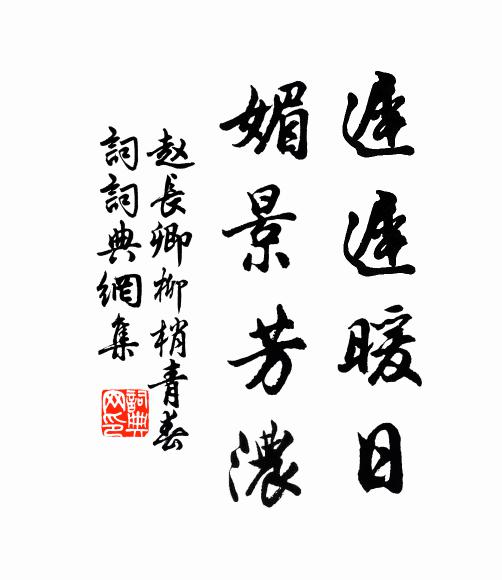 遲遲暖日
媚景芳濃
赵長卿柳梢青春
詞詞典網集
詞典网印